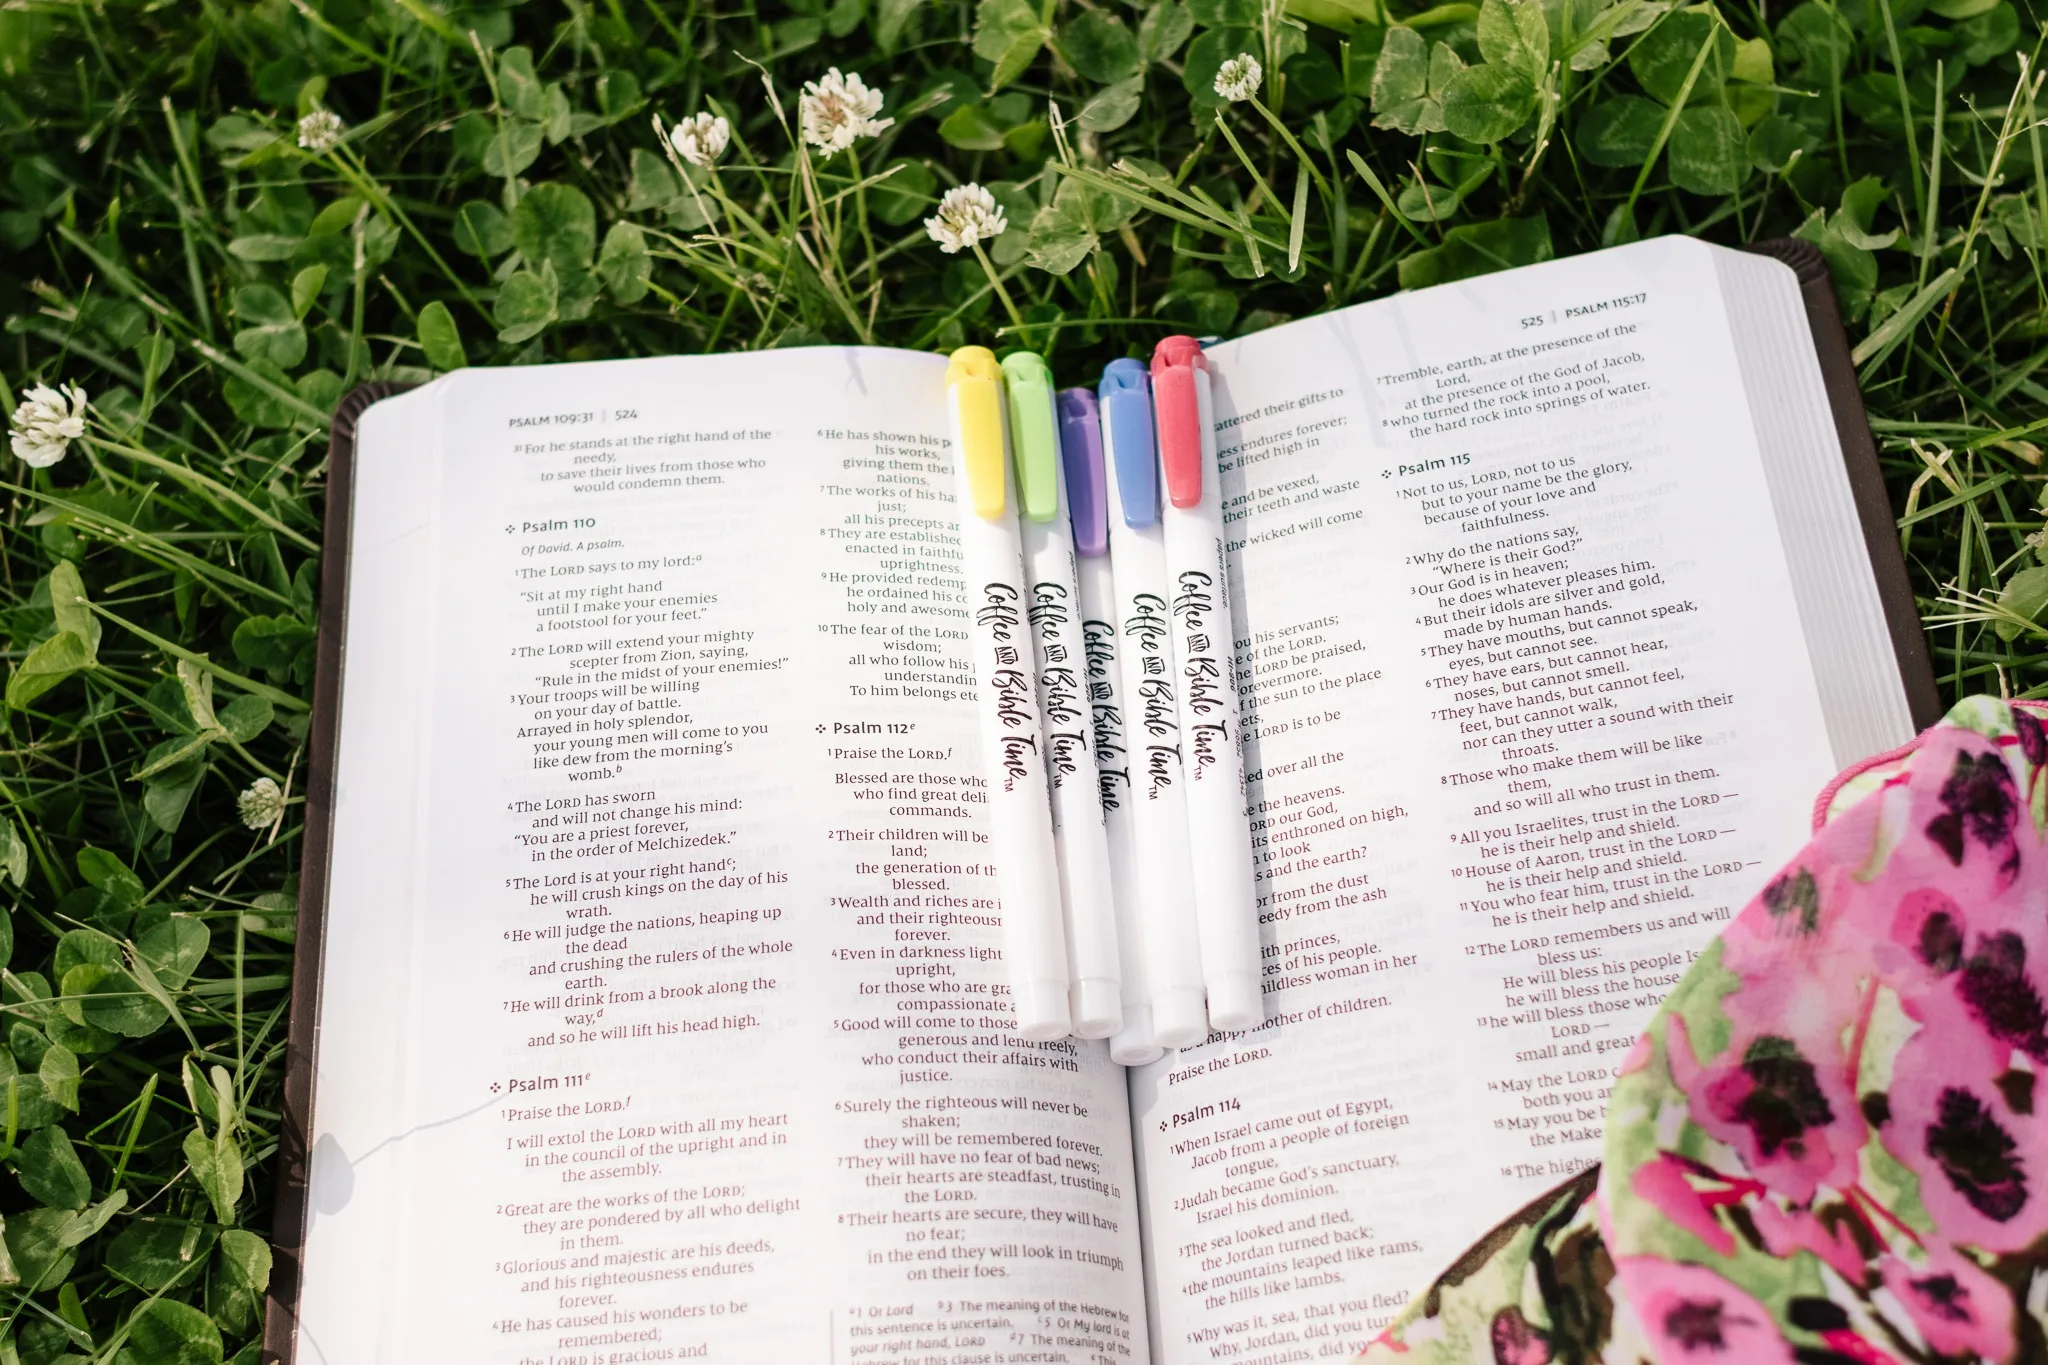 PSALM 109:31 | 524
31 For he stands at the right hand of the
needy,
to save their lives from those who
would condemn them.
Psalm 110
Of David. A psalm.
1 The LORD says to my lord:a
“Sit at my right hand
until I make your enemies
a footstool for your feet.”
2 The LORD will extend your mighty
scepter from Zion, saying,
“Rule in the midst of your enemies!”
3 Your troops will be willing
on your day of battle.
Arrayed in holy splendor,
your young men will come to you
like dew from the morning’s
womb.b
4 The LORD has sworn
and will not change his mind:
“You are a priest forever,
in the order of Melchizedek.”
5 The Lord is at your right handc;
he will crush kings on the day of his
wrath.
6 He will judge the nations, heaping up
the dead
and crushing the rulers of the whole
earth.
7 He will drink from a brook along the
way,d
and so he will lift his head high.
Psalm 111e
1 Praise the LORD.f
I will extol the LORD with all my heart
in the council of the upright and in
the assembly.
2 Great are the works of the LORD;
they are pondered by all who delight
in them.
3 Glorious and majestic are his deeds,
and his righteousness endures
forever.
4 He has caused his wonders to be
remembered;
the LORD is gracious and
6 He has shown his
his works,
giving them the
nations.
7 The works of his
just;
all his precepts
8 They are established
enacted in
uprightness.
9 He provided
he ordained his
holy and awesome
10 The fear of the LORD
wisdom;
all who follow his
To him belongs
Psalm 112e
1 Praise the LORD.f
Blessed are those who
who find great
commands.
2 Their children will be
land;
the generation of
blessed.
3 Wealth and riches are
and their
forever.
4 Even in darkness light
upright,
for those who are
compassionate
5 Good will come to those
generous and lend freely,
who conduct their affairs with
justice.
6 Surely the righteous will never be
shaken;
they will be remembered forever.
7 They will have no fear of bad news;
their hearts are steadfast, trusting in
the LORD.
8 Their hearts are secure, they will have
no fear;
in the end they will look in triumph
on their foes.
a 1 Or Lord b 3 The meaning of the Hebrew for
this sentence is uncertain. c 5 Or My lord is at
your right hand, LORD d 7 The meaning of the
Hebrew for this clause is uncertain. e This
Coffee AND Bible Time TM
Coffee AND Bible Time TM
Coffee AND Bible Time
Coffee AND Bible Time TM
Coffee AND Bible Time TM
their gifts to
endures forever;
be lifted high in
and be vexed,
their teeth and waste
the wicked will come
his servants;
of the LORD.
LORD be praised,
the sun to the place
LORD is to be
over all the
the heavens.
our God,
enthroned on high,
to look
and the earth?
from the dust
from the ash
princes,
of his people.
childless woman in her
happy mother of children.
Praise the LORD.
Psalm 114
1 When Israel came out of Egypt,
Jacob from a people of foreign
tongue,
2 Judah became God’s sanctuary,
Israel his dominion.
3 The sea looked and fled,
the Jordan turned back;
4 the mountains leaped like rams,
the hills like lambs.
5 Why was it, sea, that you fled?
Why, Jordan, did you
mountains, did
525 | PSALM 115:17
7 Tremble, earth, at the presence of the
Lord,
at the presence of the God of Jacob,
8 who turned the rock into a pool,
the hard rock into springs of water.
Psalm 115
1 Not to us, LORD, not to us
but to your name be the glory,
because of your love and
faithfulness.
2 Why do the nations say,
“Where is their God?”
3 Our God is in heaven;
he does whatever pleases him.
4 But their idols are silver and gold,
made by human hands.
5 They have mouths, but cannot speak,
eyes, but cannot see.
6 They have ears, but cannot hear,
noses, but cannot smell.
7 They have hands, but cannot feel,
feet, but cannot walk,
nor can they utter a sound with their
throats.
8 Those who make them will be like
them,
and so will all who trust in them.
9 All you Israelites, trust in the LORD —
he is their help and shield.
10 House of Aaron, trust in the LORD —
he is their help and shield.
11 You who fear him, trust in the LORD —
he is their help and shield.
12 The LORD remembers us and will
bless us:
He will bless his people
he will bless the house
13 he will bless those who
LORD —
small and great
14 May the LORD
both you
15 May you be
the
16 The